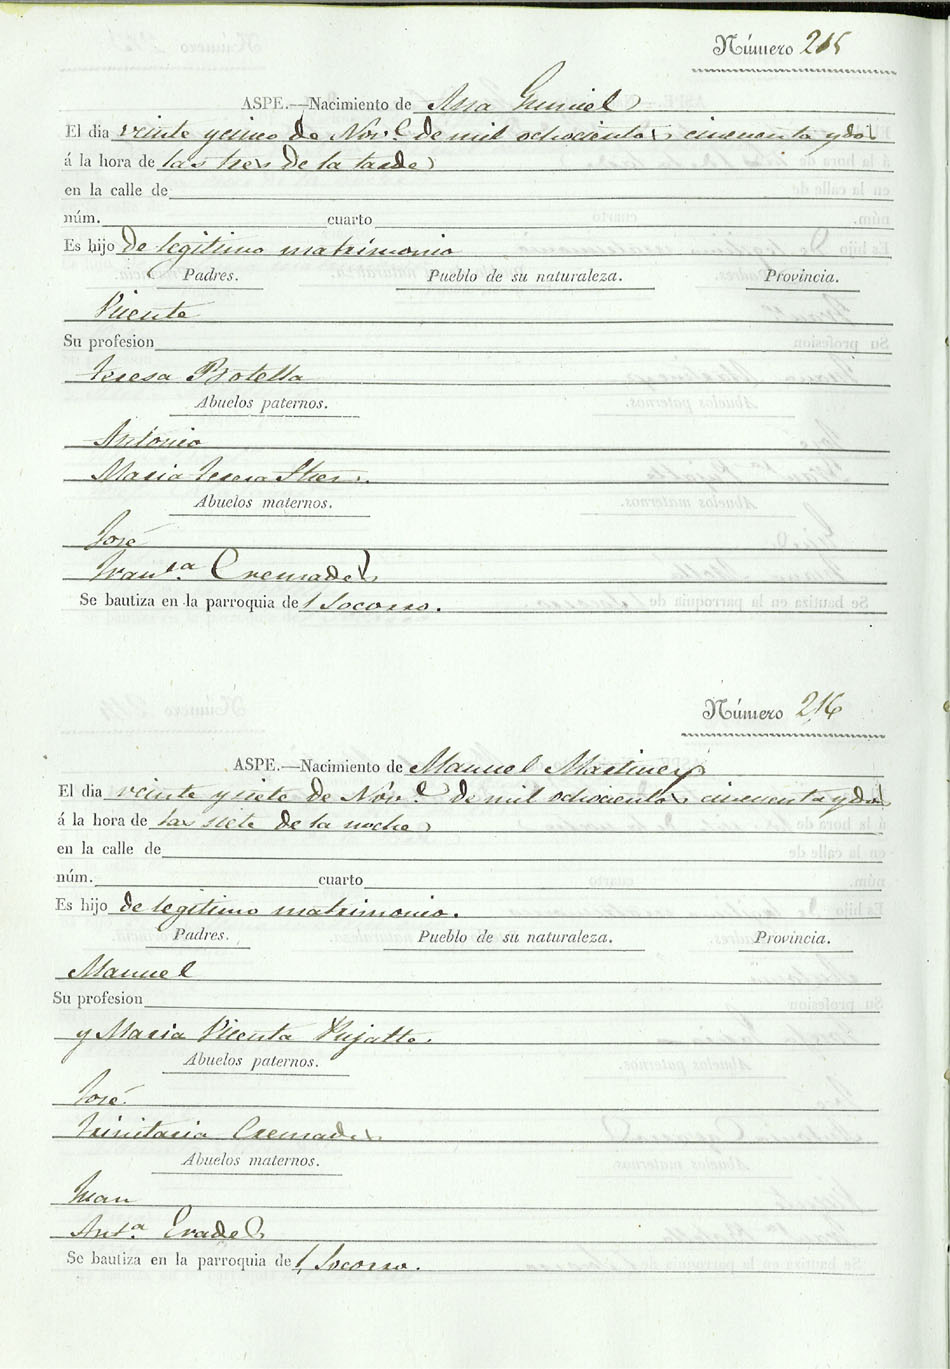 Número 215
ASPE.—Nacimiento de Ana Gumiel
El dia veinte y cinco de Nov.e de mil ochocientos cincuenta y dos
á la hora de las tres de la tarde
en la calle de
núm. cuarto
Es hijo de legitimo matrimonio
Padres. Pueblo de su naturaleza. Provincia.
Vicente
Su profesion
Teresa Botella
Abuelos paternos.
Antonio
Maria Teresa
Abuelos maternos.
José
Fran.ca Cremades
Se bautiza en la parroquia del Socorro.
Número 216
ASPE.—Nacimiento de Manuel Martinez
El dia veinte y siete de Nov.e de mil ochocientos cincuenta y dos
á la hora de las siete de la noche
en la calle de
núm. cuarto
Es hijo de legitimo matrimonio.
Padres. Pueblo de su naturaleza. Provincia.
Manuel
Su profesion
y Maria Vicenta Pujalte.
Abuelos paternos.
José
Trinitaria Cremades
Abuelos maternos.
Juan
Ant.a Erades
Se bautiza en la parroquia del Socorro.